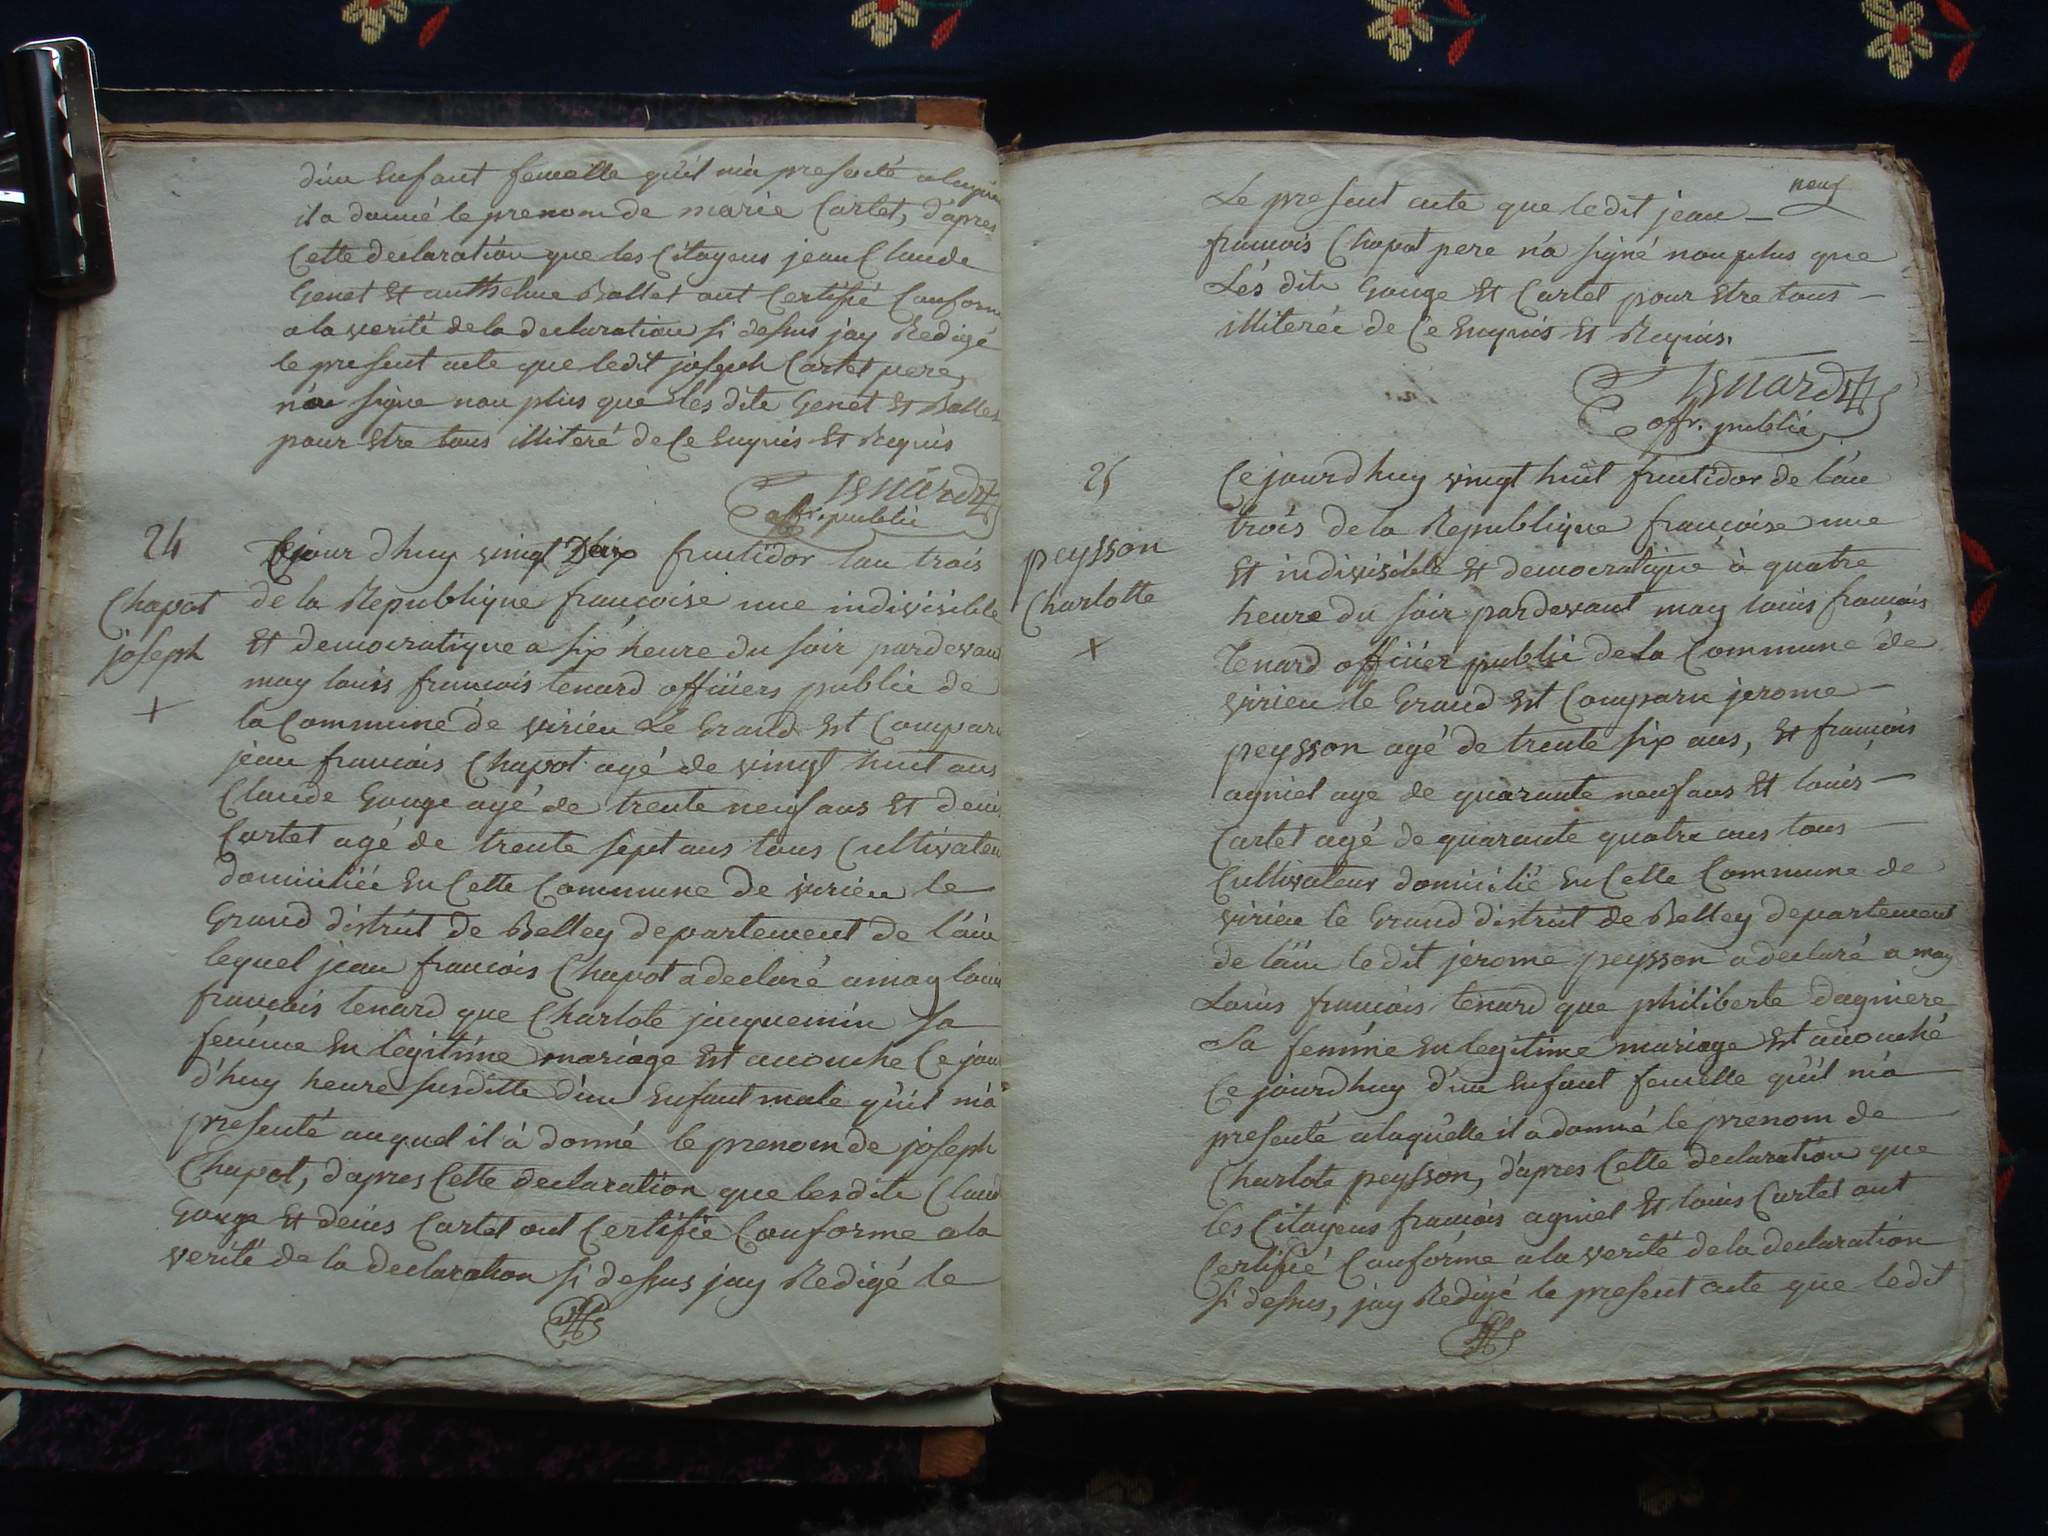 d'un Enfant femelle qu'il m'a presenté alaquelle
il a donné le prenom de marie Cartet, d'apres
Cette declaration que les Citoyens jean Claude
Genet Et anthelme Ballet ont Certifié Conforme
a la verité de la declaration si dessus j'ay Redigé
le present acte que ledit joseph Cartet pere
n'a signe non plus que les dits Genet Et Ballet
pour Etre tous illiteré de Ce Enquis Et Requis
tenard
offr. public
24
Chapot
joseph
+
Cejour dhuy vingt Six fructidor l'an trois
de la Republique françoise une indivisible
Et democratique a six heure du soir pardevant
moy louis françois tenard officiers public de
la Commune de virieu Le Grand Est Comparu
jean francois Chapot agé de vingt huit ans
Claude Gouge agé de trente neuf ans Et denis
Cartet agé de trente sept ans tous Cultivateur
domiciliée En Cette Commune de virieu le
Grand district de Belley departement de l'ain
lequel jean francois Chapot a declaré a moy louis
francois tenard que Charlote jacquemin sa
femme En legitime mariage Est acouché Ce jour
d'huy heure susditte d'un Enfant male qu'il m'a
presenté auquel il à donné le prenom de joseph
Chapot, d'apres Cette declaration que les dits Claude
Gouge Et denis Cartet ont Certifié Conforme a la
verité de la declaration si dessus jay Redigé le
neuf
Le present acte que ledit jean
francois Chapot pere n'a signé non plus que
Lés dits Gouge Et Cartet pour Etre tous
illiterée de Ce Enquis Et Requis.
tenard
offr. public
25
peysson
Charlotte
+
Cejourdhuy vingt huit fructidor de l'an
trois de la Republique françoise une
Et indivisible Et democratique à quatre
heure du soir pardevant moy louis francois
tenard officier public de la Commune de
virieu le Grand Est Comparu jerome
peysson agé de trente six ans, Et francois
agniel age de quarante neuf ans Et louis
Cartet agé de quarante quatre ans tous
Cultivateur domicilié En Cette Commune de
virieu le Grand district de Belley departement
de l'ain ledit jerome peysson a declaré a moy
Louis francois tenard que philiberte dagniere
Sa femme En legitime mariage Est acouché
Ce jourdhuy d'un Enfant femelle qu'il m'a
presenté alaquelle il a donné le prenom de
Charlote peysson, d'apres Cette declaration que
les Citoyens francois agniel Et louis Cartet ont
Certifié Conforme a la verité de la declaration
si dessus, jay Redigé le present acte que ledit